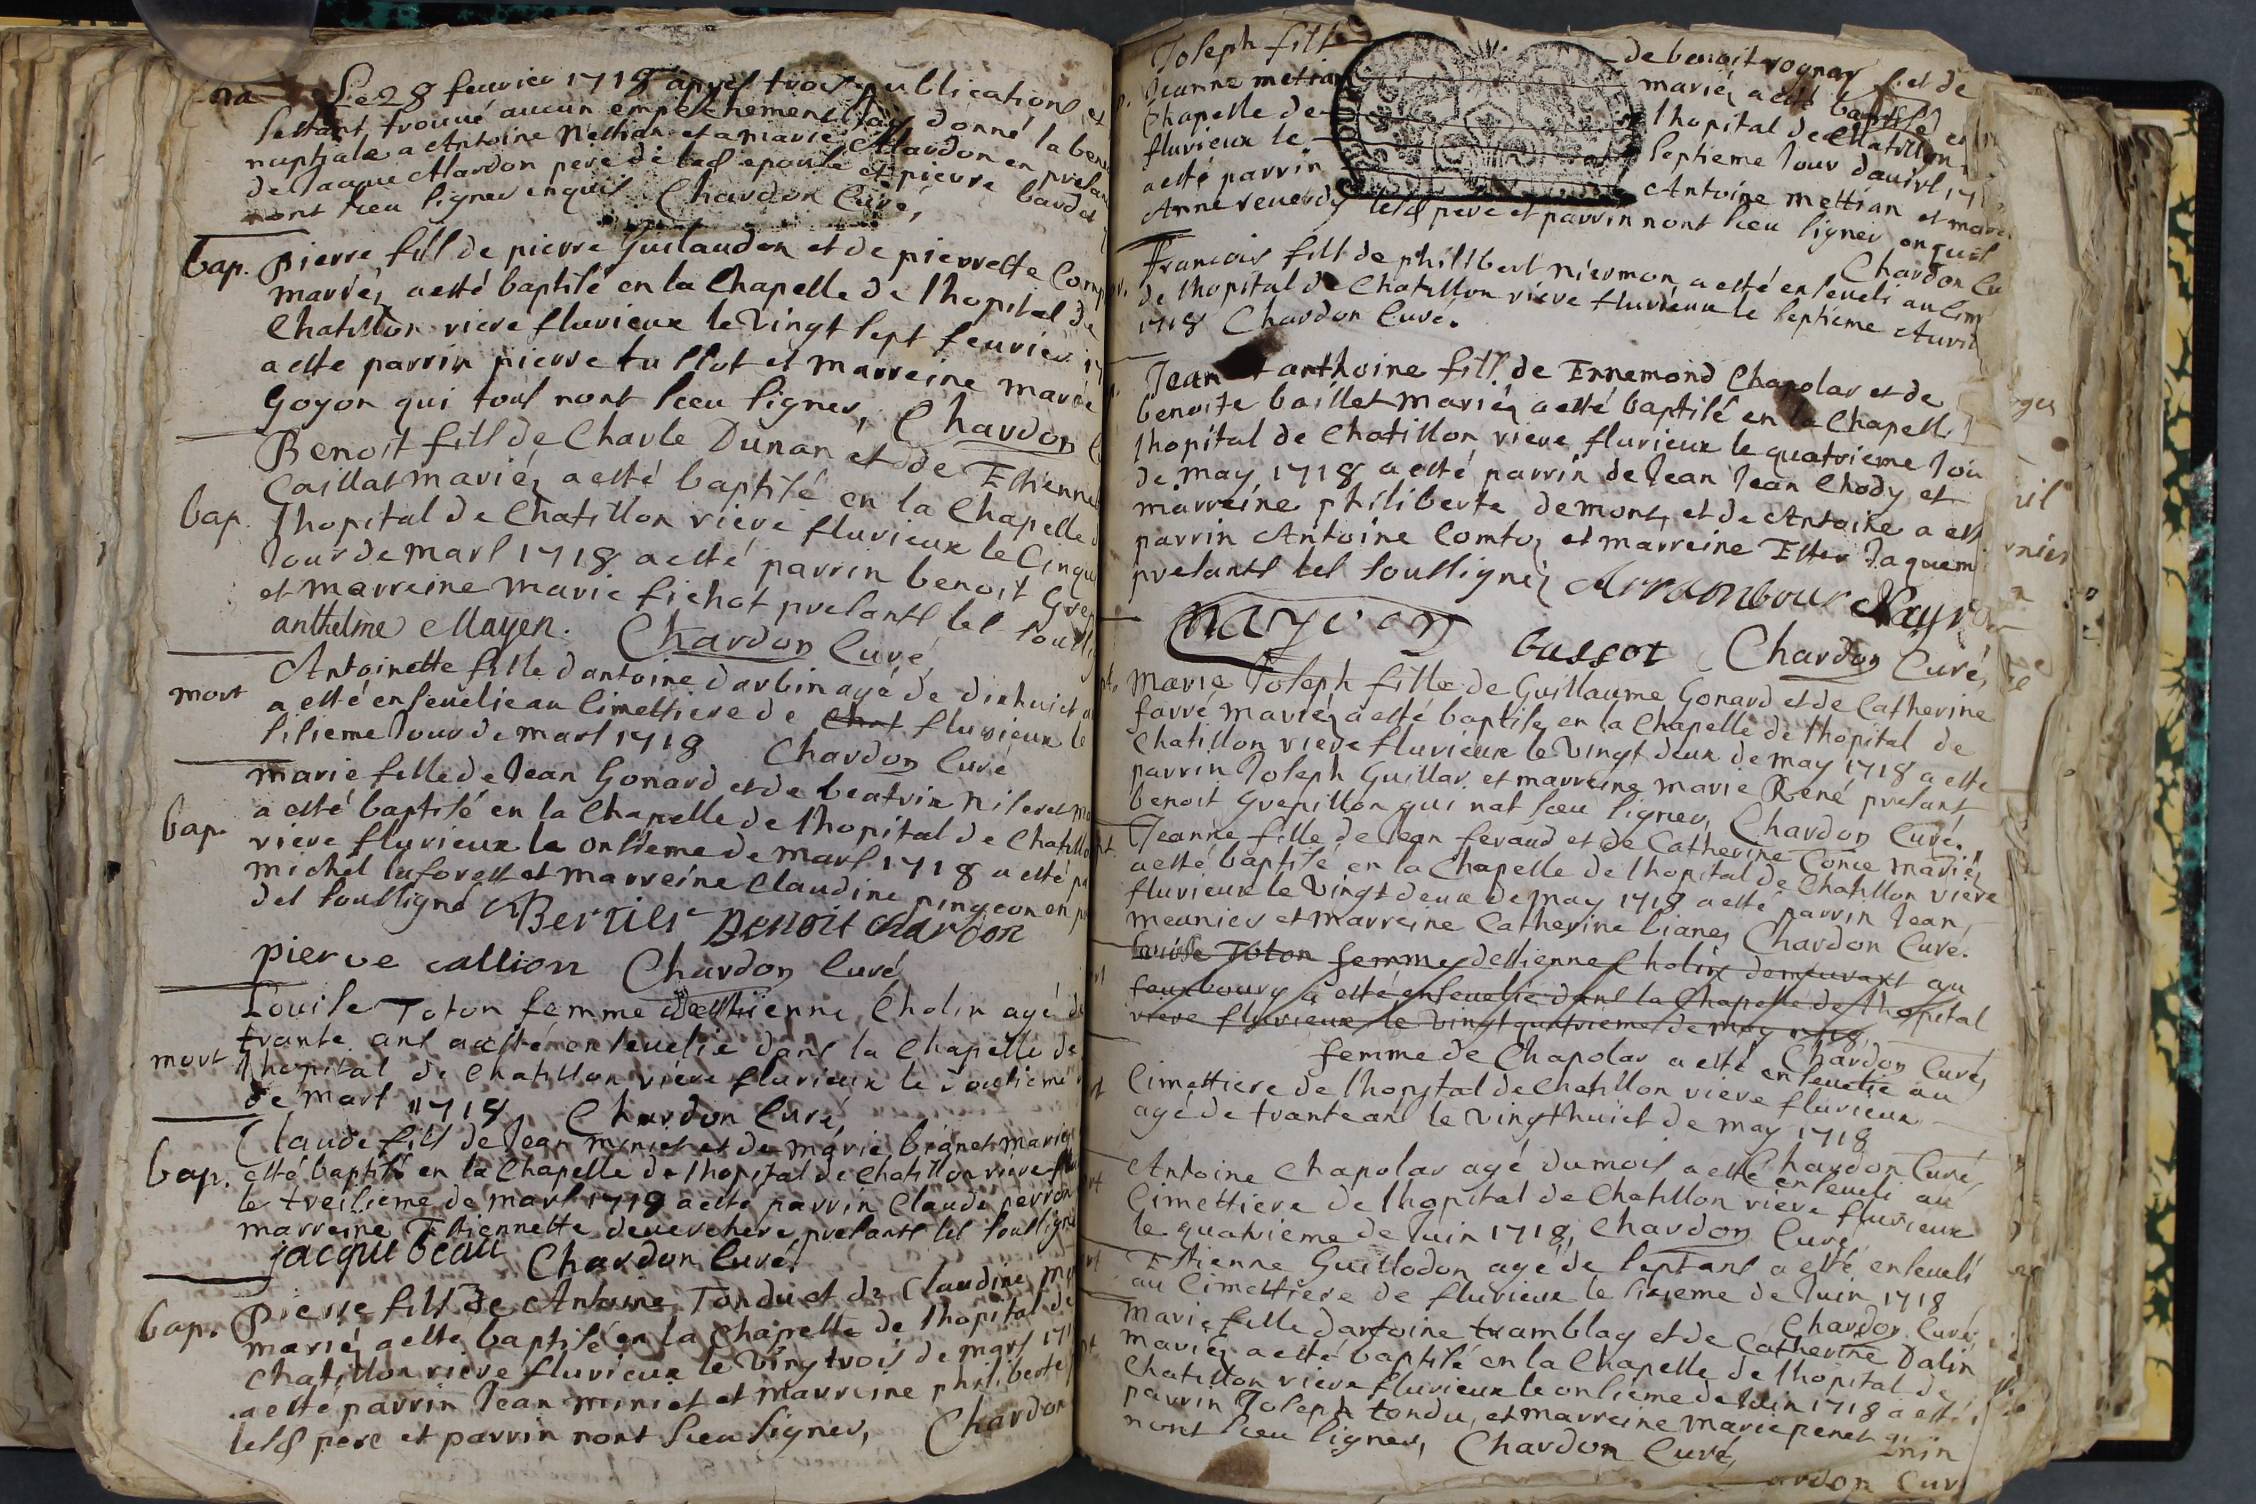 Le 28 feurier 1718 apres trois publications et
sestant trouué aucun empeschement Jay donné la bene
nuptiale a Antoine Mettian et a marie Mardon en presan
de Jaque Mardon pere de lad epouse et pierre bardet
nont sceu signer enquis Chardon Curé,
bap. pierre fils de pierre Guilaudon et de pierrette Comp
mariéz a esté baptisé en la Chapelle de lhopital de
Chatillon riere flurieux le Vingt sept feurier 17
a esté parrin pierre tullot et marreine marie
Goyon qui tous nont sceu signer, Chardon C
Benoit fils de Charle Dunan et de Estienne
Caillat mariéz a esté baptisé en la Chapelle d
bap. lhopital de Chatillon riere flurieux le Cinqu
Jour de mars 1718 a esté parrin benoit Gre
et marreine marie fichot presants les sousig
anthelme Mayen. Chardon Curé,
Antoinette fille dantoine darbin agé de dixhuict a
mort a esté enseuelie au Cimettiere de flurieux le
sisieme Jour de mars 1718 Chardon Curé
marie fille de Jean Gonard et de beatrix niseret ma
bap. a esté baptisé en la Chapelle de lhopital de Chatillo
riere flurieux le onsieme de mars 1718 a esté pa
michel laforest et marreine Claudine pingeon en p
des soussigné Bertier Benoit chardon
pierre callion Chardon Curé
Louise Toton femme destienne Cholin agé de
trante ans a esté enseuelie dans la Chapelle de
mort lhopital de Chatillon riere flurieux le dousieme
de mars 1718, Chardon Curé,
Claude fils de Jean miniet et de marie brenet mariez
bap. esté baptisé en la Chapelle de lhopital de Chatillon riere flu
le treisieme de mars 1718 a esté parrin Claude perron
marreine Estiennette deuerchere presants les soussigné
jaque beau Chardon Curé.
bap. Pierre fils de Antoine Tondu et de Claudine mi
mariéz a esté baptisé en la Chapelle de lhopital de
Chatillon riere flurieux le Vingt trois de mars 171
a esté parrin Jean miniet et marreine philiberte
lesd pere et parrin nont sceu signer, Chardon
Joseph fils de benoit rognar et de
Jeanne metian mariéz a esté baptisé en
Chapelle de lhopital de Chatillon
flurieux le septieme Jour dauirl 17
a esté parrin Antoine mettian et mar
Anne reuerdy lesd pere et parrin nont sceu signer enquis
Chardon Cu
Francois fils de philibert niermon a esté enseueli au Cim
de lhopital de Chatillon riere flurieux le septieme Auril
1718 Chardon Curé.
Jean anthoine fils de Ennemond Chapolar et de
benoite baillet mariéz a esté baptisé en la Chapelle
lhopital de Chatillon riere flurieux le quatrieme Jou
de may 1718 a esté parrin de Jean Jean Chody et
marreine philiberte demont, et de Antoine a est
parrin Antoine Comtoz et marreine Ester Jaquem
presants les soussignéz Arrambour Nayro
nayron bussot Chardon Curé,
marie Joseph fille de Guillaume Gonard et de Catherine
farre mariéz a esté baptiséz en la Chapelle de lhopital de
Chatillon riere flurieux le Vingt deux de may 1718 a esté
parrin Joseph Guillar et marreine marie René presant
benoit Grenillon qui nat sceu signer, Chardon Curé.
Jeanne fille de Jean feraud et de Catherine Conce mariéz
a esté baptisé en la Chapelle de lhopital de Chatillon riere
flurieux le Vingt deux de may 1718 a esté parrin Jean
meunier et marreine Catherine lianez Chardon Curé.
Louise Toton femme destienne Cholin demeurant au
fauxbourg a esté enseuelie dans la Chapelle de lhopital
riere flurieux le Vingt quatrieme de may 1718
Chardon Curé,
femme de Chapolar a esté enseuelie au
Cimettiere de lhopytal de Chatillon riere flurieux
agé de trante ans le Vingthuict de may 1718
Chardon Curé,
Antoine Chapolar agé dumois a esté enseueli au
Cimettiere de lhopital de Chatillon riere fluvieux
le quatrieme de Juin 1718, Chardon Curé,
Estienne Guillodon agé de sept ans a esté enseueli
au Cimettiere de fluvieux le sixieme de Juin 1718
Chardon Curé,
Marie fille dantoine tramblay et de Catherine Dalin
mariéz a esté baptisé en la Chapelle de lhopital de
Chatillon riere fluvieux le onsieme de Juin 1718 a esté
parrin Joseph tondu, et marreine marie penet
nont sceu signer, Chardon Curé,
ardon Cur